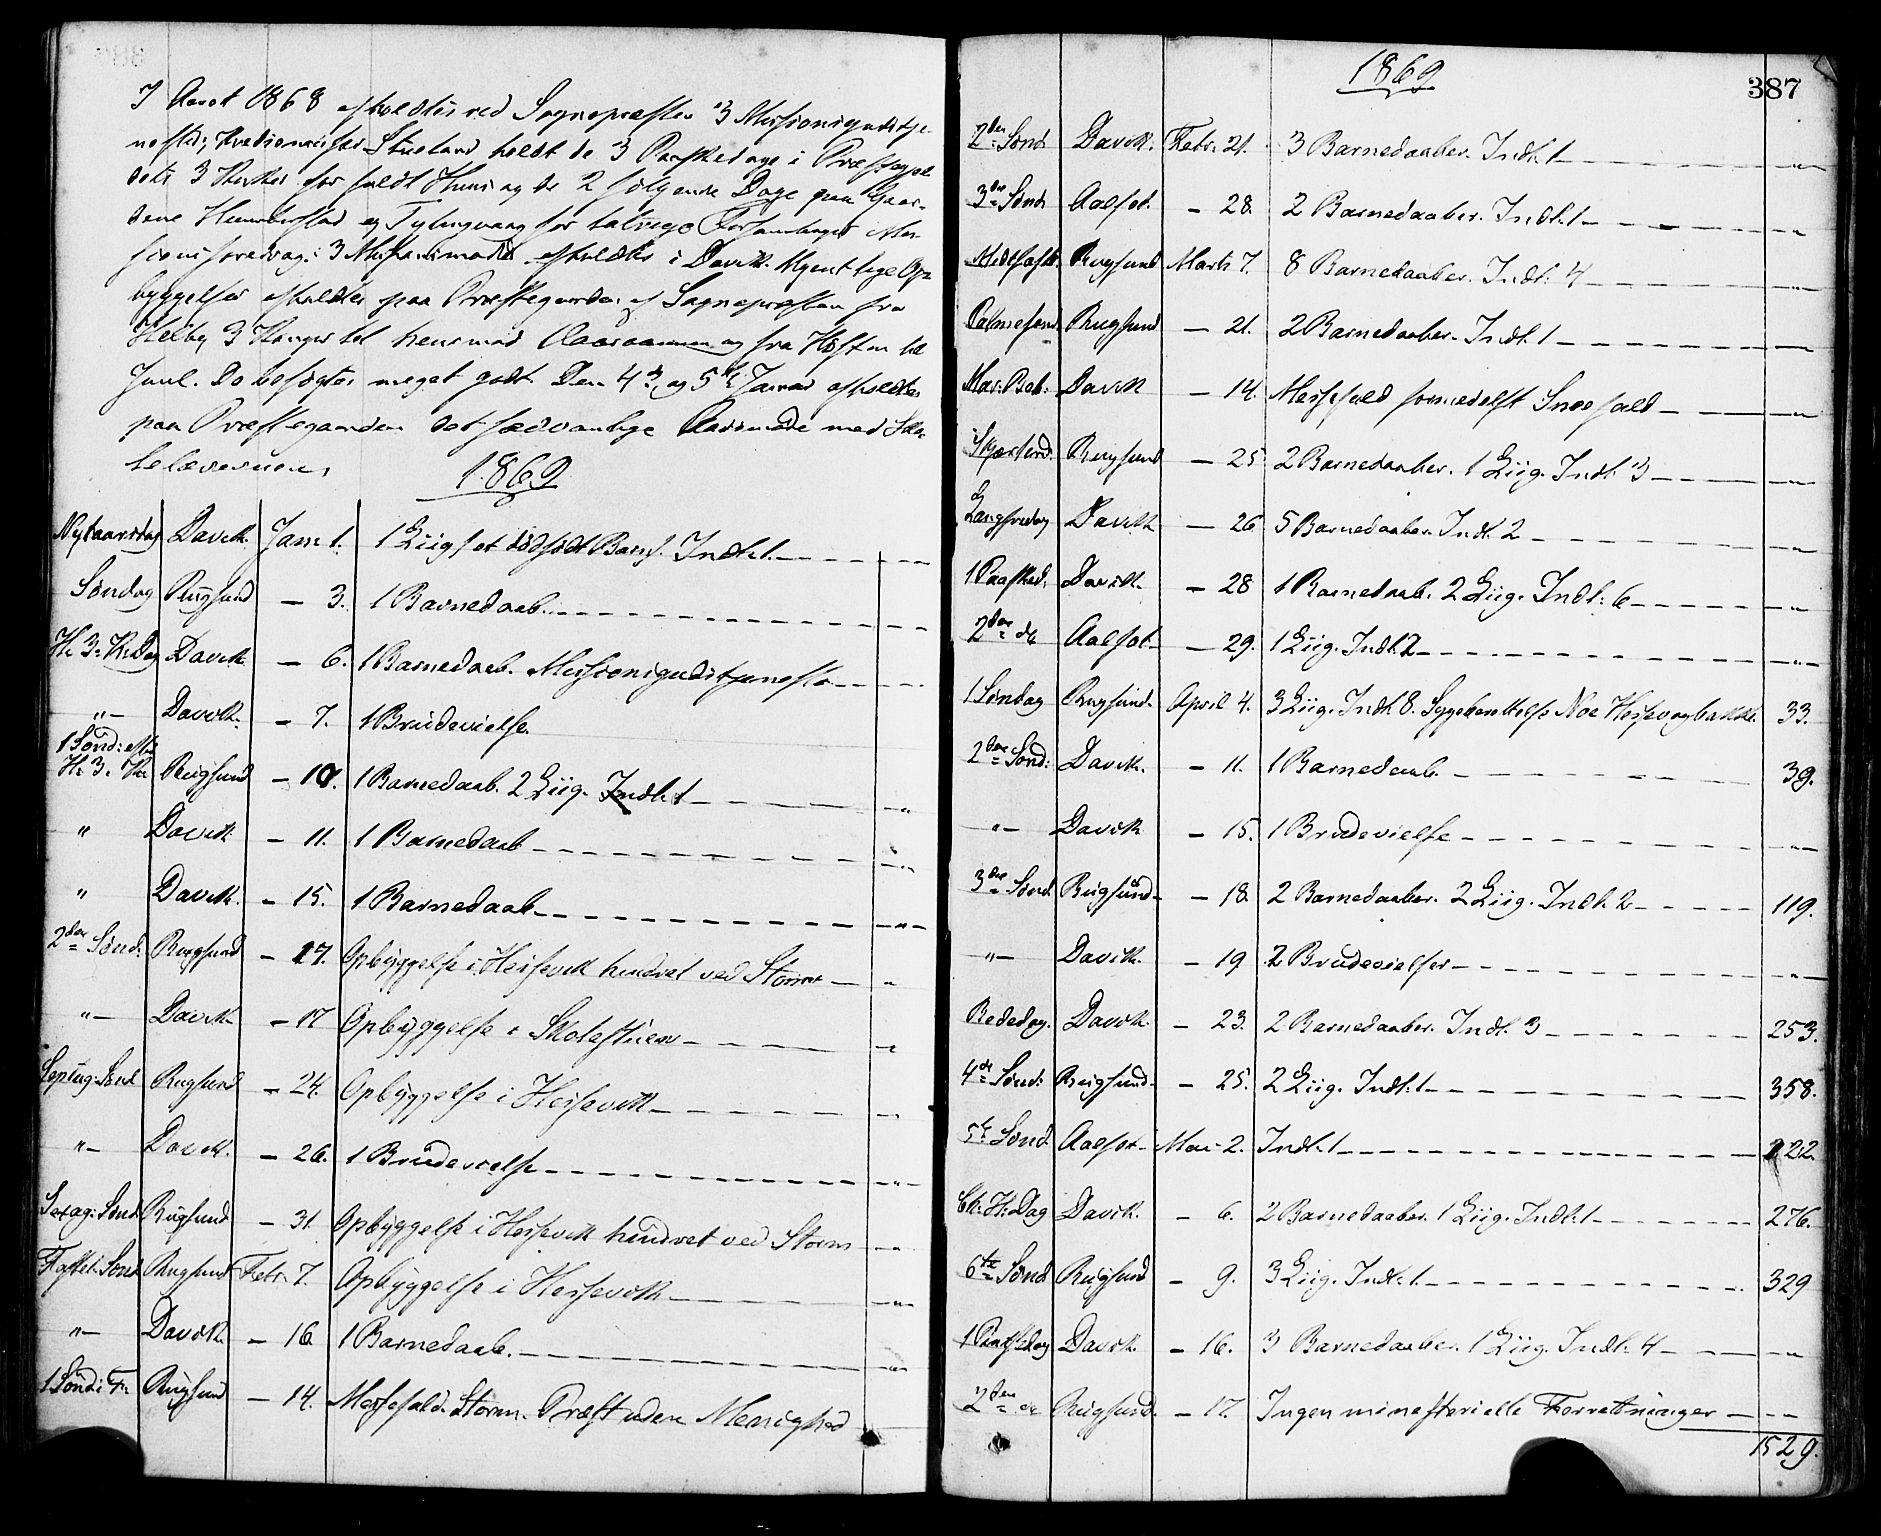 I Aaret 1868 afholdtes ved Sognepræsten 3 Missionsgudstje-
nester, holdt de 3 Paaskedage i Præstegjel
dets 3 Kirker for fuldt Huus og de 2 følgende Dage paa Gaar-
dene og for talrige Forsamlinger Mis-
sionsforedrag. 3 Missionsmøder afholdtes i Davik. Ugentlige Op-
byggelser afholdtes paa Præstegaarden af Sognepræsten fra
Helbg 3 Konger til henimod Vaaraannen og fra Høsten til
Juul. De besøgtes meget godt. Den 4de og 5te Januar afholdtes
paa Præstegaarden det sædvanlige Aarsmøde med Sko-
lelærerne.
1869
Nytaarsdag Davik. Janr 1. 1 Liig, et dødfødt Barn. Indl: 1.
Søndag Rugsund — 3. 1 Barnedaab.
H. 3. K. Dag Davik — 6. 1 Barnedaab. Missionsgudstjeneste
"— Davik. — 7. 1 Brudevielse.
1 Sønd: efter
H. 3. K. Rugsund — 10. 1 Barnedaab. 2 Liig. Indl: 1 "
" Davik — 11. 1 Barnedaab "
" Davik. — 15. 1 Barnedaab "
2den Sønd: Rugsund — 17. Opbyggelse i Hessevik hindret ved Storm "
"— Davik — 17 Opbyggelse i Skolestuen "
Septug: Sønd Rugsund — 24. Opbyggelse i Hessevik "
"— Davik. — 26. 1 Brudevielse "
Sexag: Sønd. Rugsund — 31. Opbyggelse i Hessevik hindret ved Storm "
Fastel. Sønd Rugsund Febr. 7. Opbyggelse i Hessevik "
"— Davik — 16 1 Barnedaab. "
1 Sønd i F. Rugsund — 14. Messefald. Storm. Præst uden Menighed
1869
387
2den Sønd Davik. Febr. 21. 3 Barnedaaber. Indl: 1 "
3die Sønd Aalfot. — 28. 2 Barnedaaber. Indl: 1 "
Midtfaste. Rugsund Marts 7. 8 Barnedaaber. Indl: 4 "
Palmesønd Rugsund — 21. 2 Barnedaaber. Indl: 1 "
Mar. Beb: Davik — 14. Messefald formedelst Sneefald "
Skjærtorsd. Rugsund — 25 2 Barnedaaber. 1 Liig. Indl: 3 "
Langfredag Davik — 26 5 Barnedaaber. Indl: 2 "
1 Paasked: Davik. — 28 1 Barnedaab. 2 Liig. Indl: 6 "
2den do Aalfot — 29. 1 Liig. Indl: 2 "
1 Søndag Rugsund. April 4. 3 Liig. Indl: 8. Sygeberettelse Noe Hessevagbakke. 33.
2den Sønd: Davik. — 11. 1 Barnedaab. 39.
"— Davik — 15. 1 Brudevielse "
3die Sønd Rugsund — 18. 2 Barnedaaber. 2 Liig. Indl: 2 119.
"— Davik. — 19 2 Brudevielser "
Bededag. Davik. — 23. 2 Barnedaaber. Indl: 3 253.
4de Sønd: Rugsund — 25. 2 Liig. Indl: 1 358.
5te Sønd Aalfot Mai 2. Indl: 1 122.
Ch: H: Dag Davik. — 6. 2 Barnedaaber. 1 Liig. Indl: 1 276.
6te Sønd Rugsund — 9. 3 Liig. Indl: 1. 329
1 Pintsedag Davik. — 16. 3 Barnedaaber. 1 Liig. Indl: 4 "
2den do Rugsund. — 17. Ingen ministerielle Forretninger "
1529.